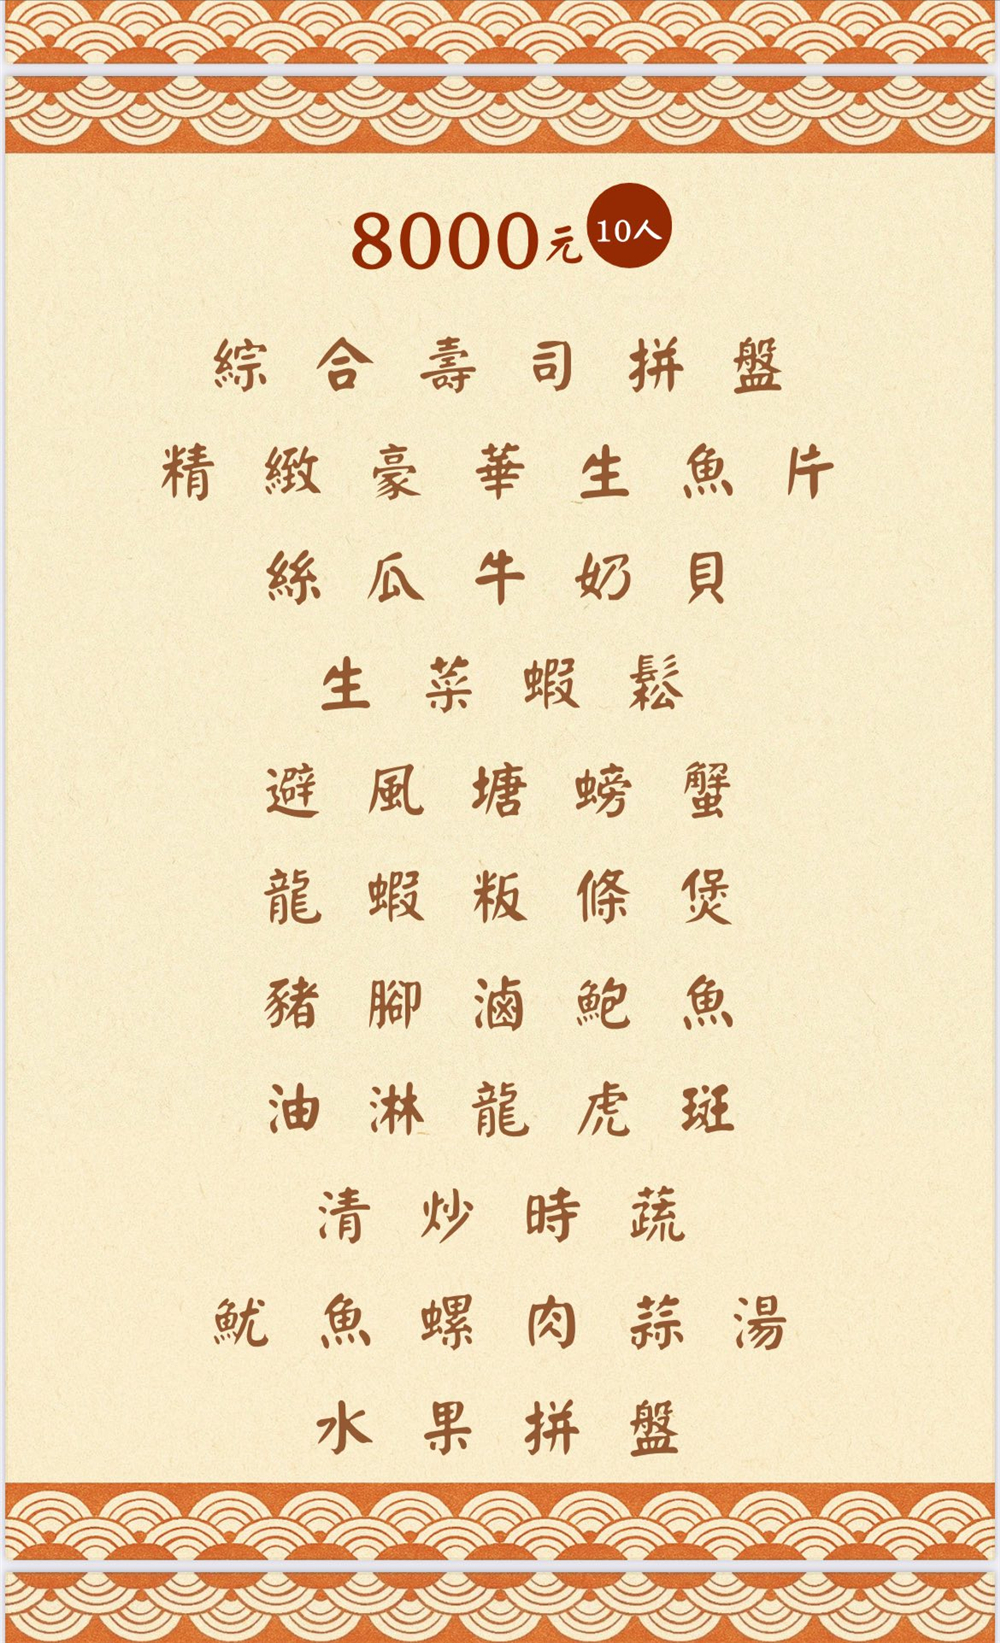 8000元 10人
綜合壽司拼盤
精緻豪華生魚片
絲瓜牛奶貝
生菜蝦鬆
避風塘螃蟹
龍蝦粄條煲
豬腳滷鮑魚
油淋龍虎斑
清炒時蔬
魷魚螺肉蒜湯
水果拼盤